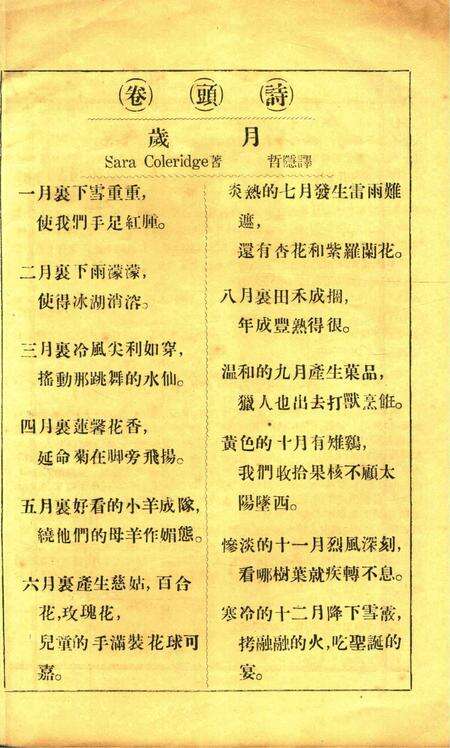 卷頭詩
歲月
Sara Coleridge著 哲隱譯
一月裏下雪重重，
使我們手足紅腫。
二月裏下雨濛濛，
使得冰湖消溶。
三月裏冷風尖利如穿，
搖動那跳舞的水仙。
四月裏蓮馨花香，
延命菊在脚旁飛揚。
五月裏好看的小羊成隊，
繞他們的母羊作媚態。
六月裏產生慈姑，百合
花，玫瑰花，
兒童的手滿裝花球可
嘉。
炎熱的七月發生雷雨難
遮，
還有杏花和紫羅蘭花。
八月裏田禾成捆，
年成豐熟得很。
温和的九月產生菓品，
獵人也出去打獸烹飪。
黃色的十月有雉鷄，
我們收拾果核不顧太
陽墜西。
慘淡的十一月烈風深刻，
看哪樹葉就疾轉不息。
寒冷的十二月降下雪霰，
拷融融的火，吃聖誕的
宴。